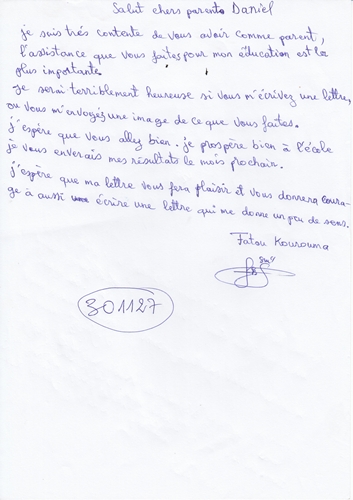 Salut chers parents Daniel
je suis très contente de vous avoir comme parent,
l'assistance que vous faites pour mon éducation est la
plus importante.
Je serai terriblement heureuse si vous m'écrivez une lettre,
ou vous m'envoyés une image de ce que vous faites.
j'espère que vous allez bien. je prospère bien à l'école
je vous enverais mes résultats le mois prochain.
j'espère que ma lettre vous fera plaisir et vous donnera coura-
ge à aussi écrire une lettre qui me donne un peu de sens.
Fatou Kourouma
301127